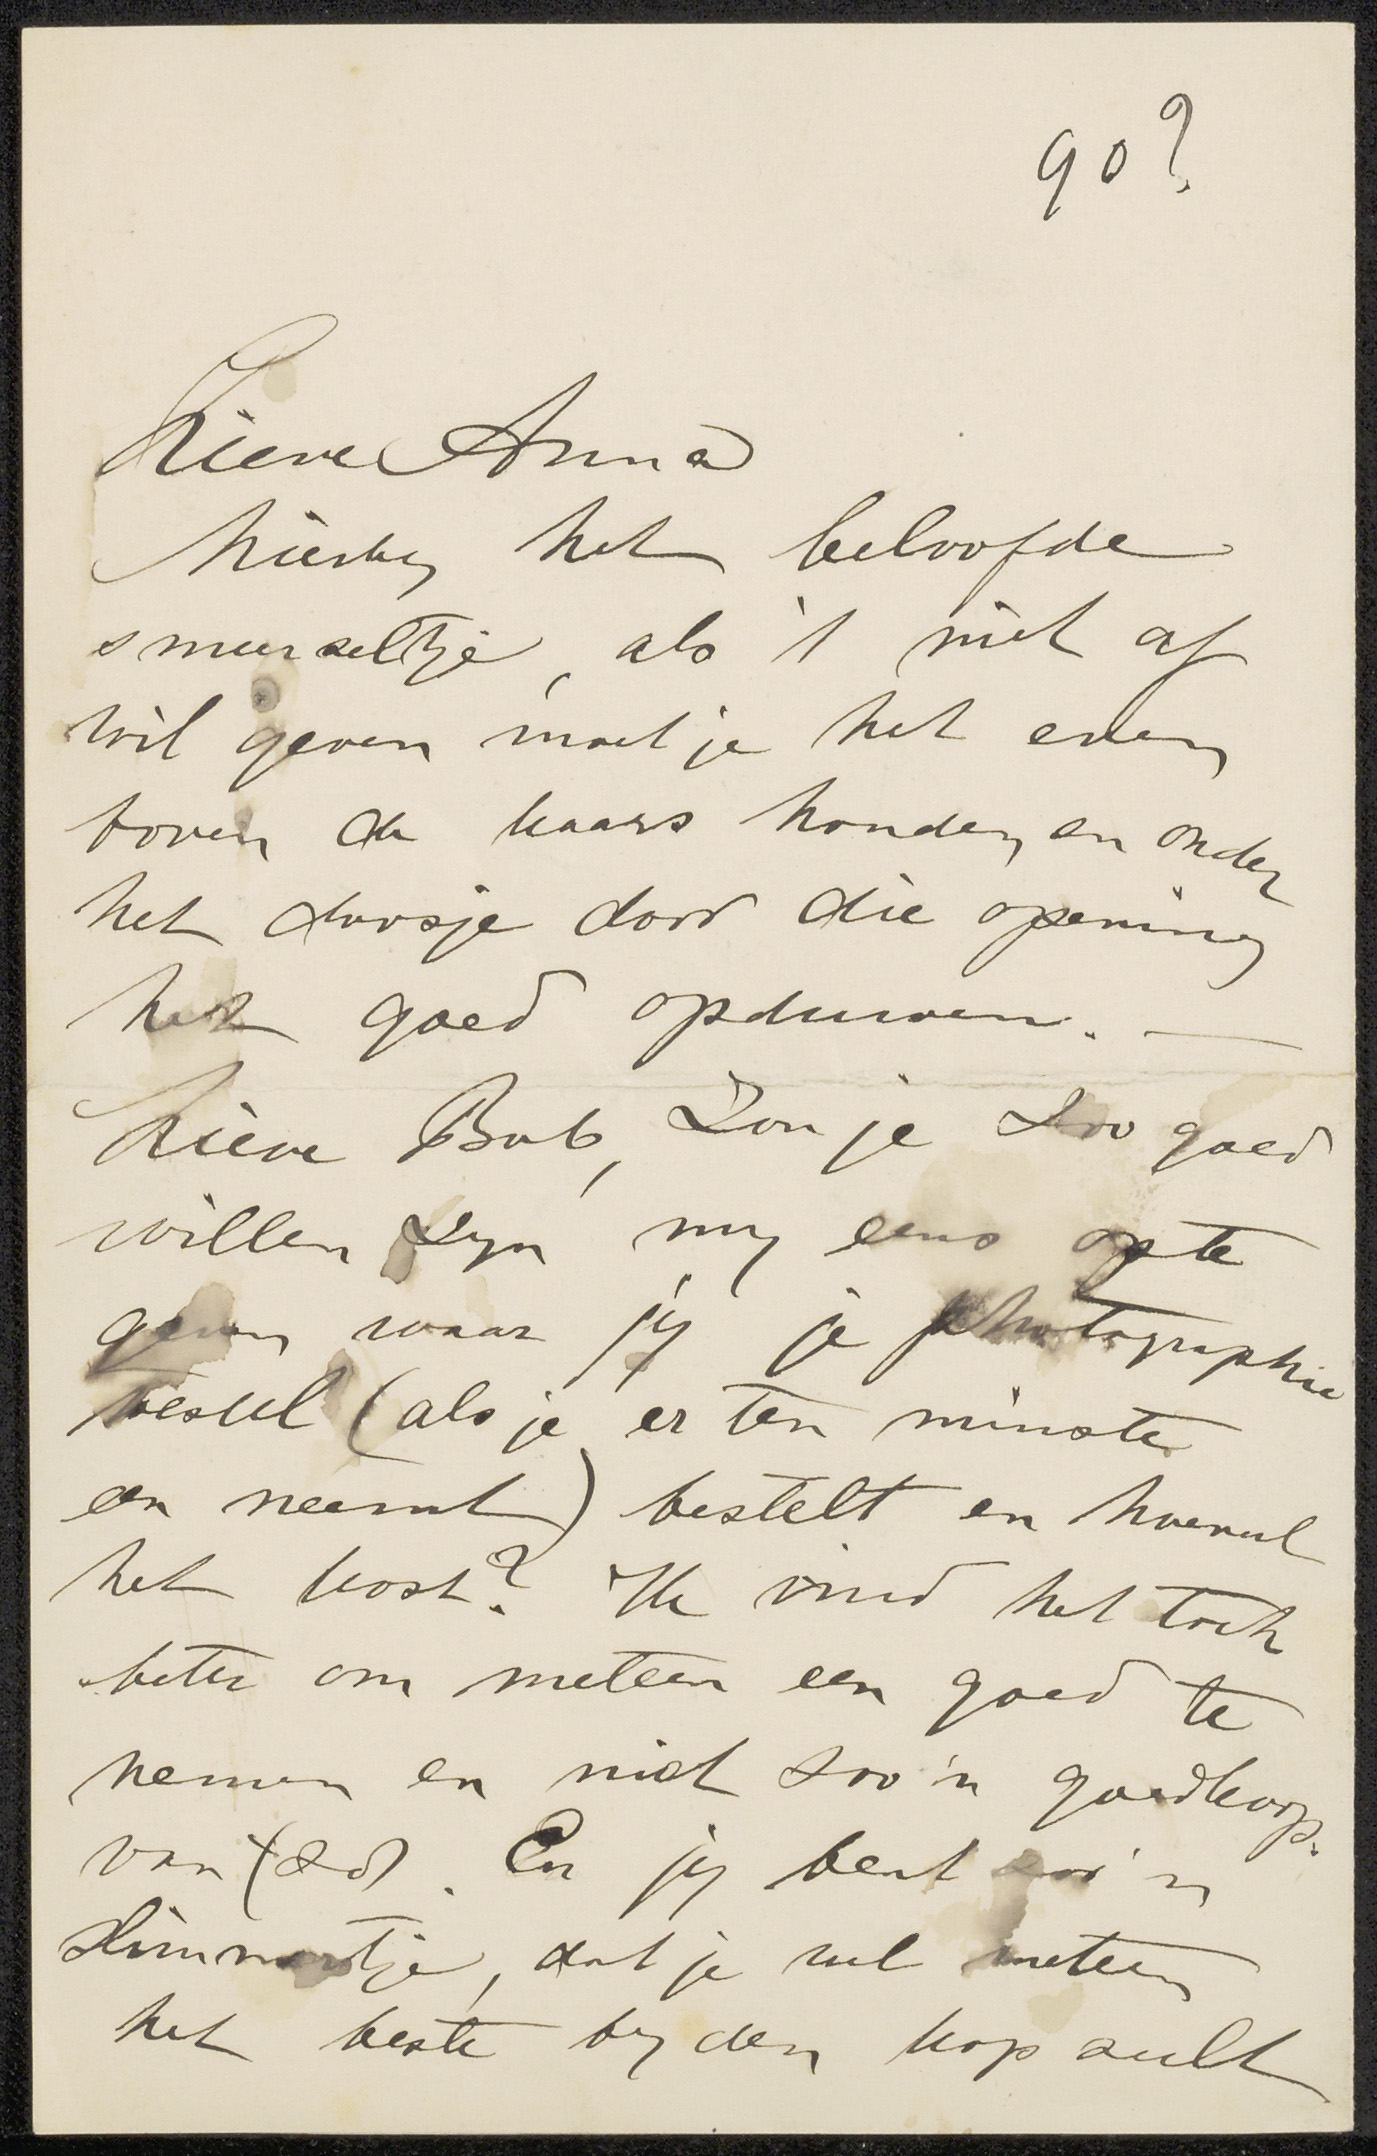 90?
Lieve Anna
hierby het beloofde
smeerseltje, als 't niet af
wil geven moet je het even
boven de kaars houden, en onder
het doosje door die opening
het goed opduwen. —
Lieve Bob, Zou je zoo goed
willen zyn my eens op te
geven waar jy je photographie
toestel (als je er ten minste
een neemt) bestelt en hoeveel
het kost? Ik vind het toch
beter om meteen een goed te
nemen en niet zoo'n goedkoop.
van En jy bent zoo'n
slimmertje, dat je wel meteen
het beste by den kop zult